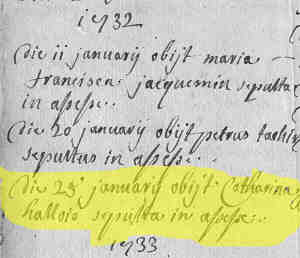 1732
Die 11 januarij obijt maria
francisca jacquemin sepulta
in assesse.
Die 20 januarij obijt petrus
sepultus in assesse.
Die 25 januarij obijt Catharina
hallois sepulta in assesse.
1733